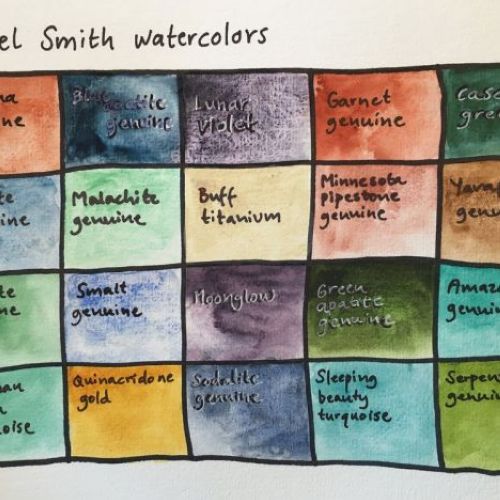 el Smith watercolors
na
ne
Blue
apatite
genuine
Lunar
violet
Garnet
genuine
Casc
gree
te
ine
Malachite
genuine
Buff
titanium
Minnesota
pipestone
genuine
Yava
genu
te
ne
Smalt
genuine
Moonglow
Green
apatite
genuine
Amaz
genuin
an
n
oise
Quinacridone
gold
Sodalite
genuine
Sleeping
beauty
turquoise
Serpen
genuin